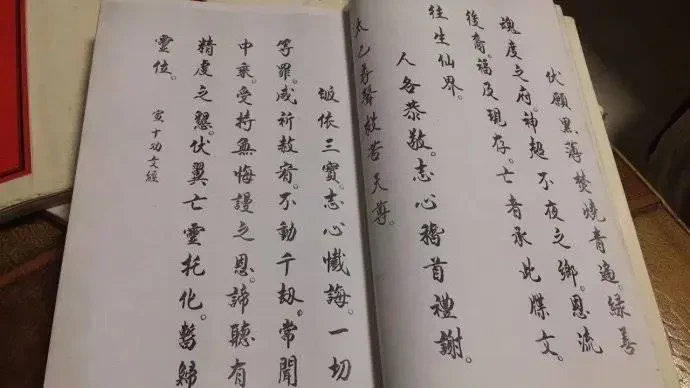 伏願黑薄焚燒青逼。緣善
魂度之府。神超不夜之鄉。恩流
後裔。福及現存。亡者承此牒文。
往生仙界。
人各恭敬。志心稽首禮謝。
太乙尋聲救苦天尊。
皈依三寶。志心懺誨。一切
等罪。咸祈赦宥。不動千劫。常聞
中乘。受持無悔謾之恩。諦聽有
精虔之懇。伏冀亡靈托化。暫歸
靈位。
宣十功文經